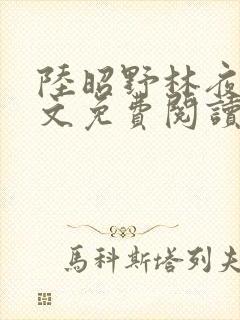 陸昭野林夜
文免費閱讀
馬科斯塔列夫